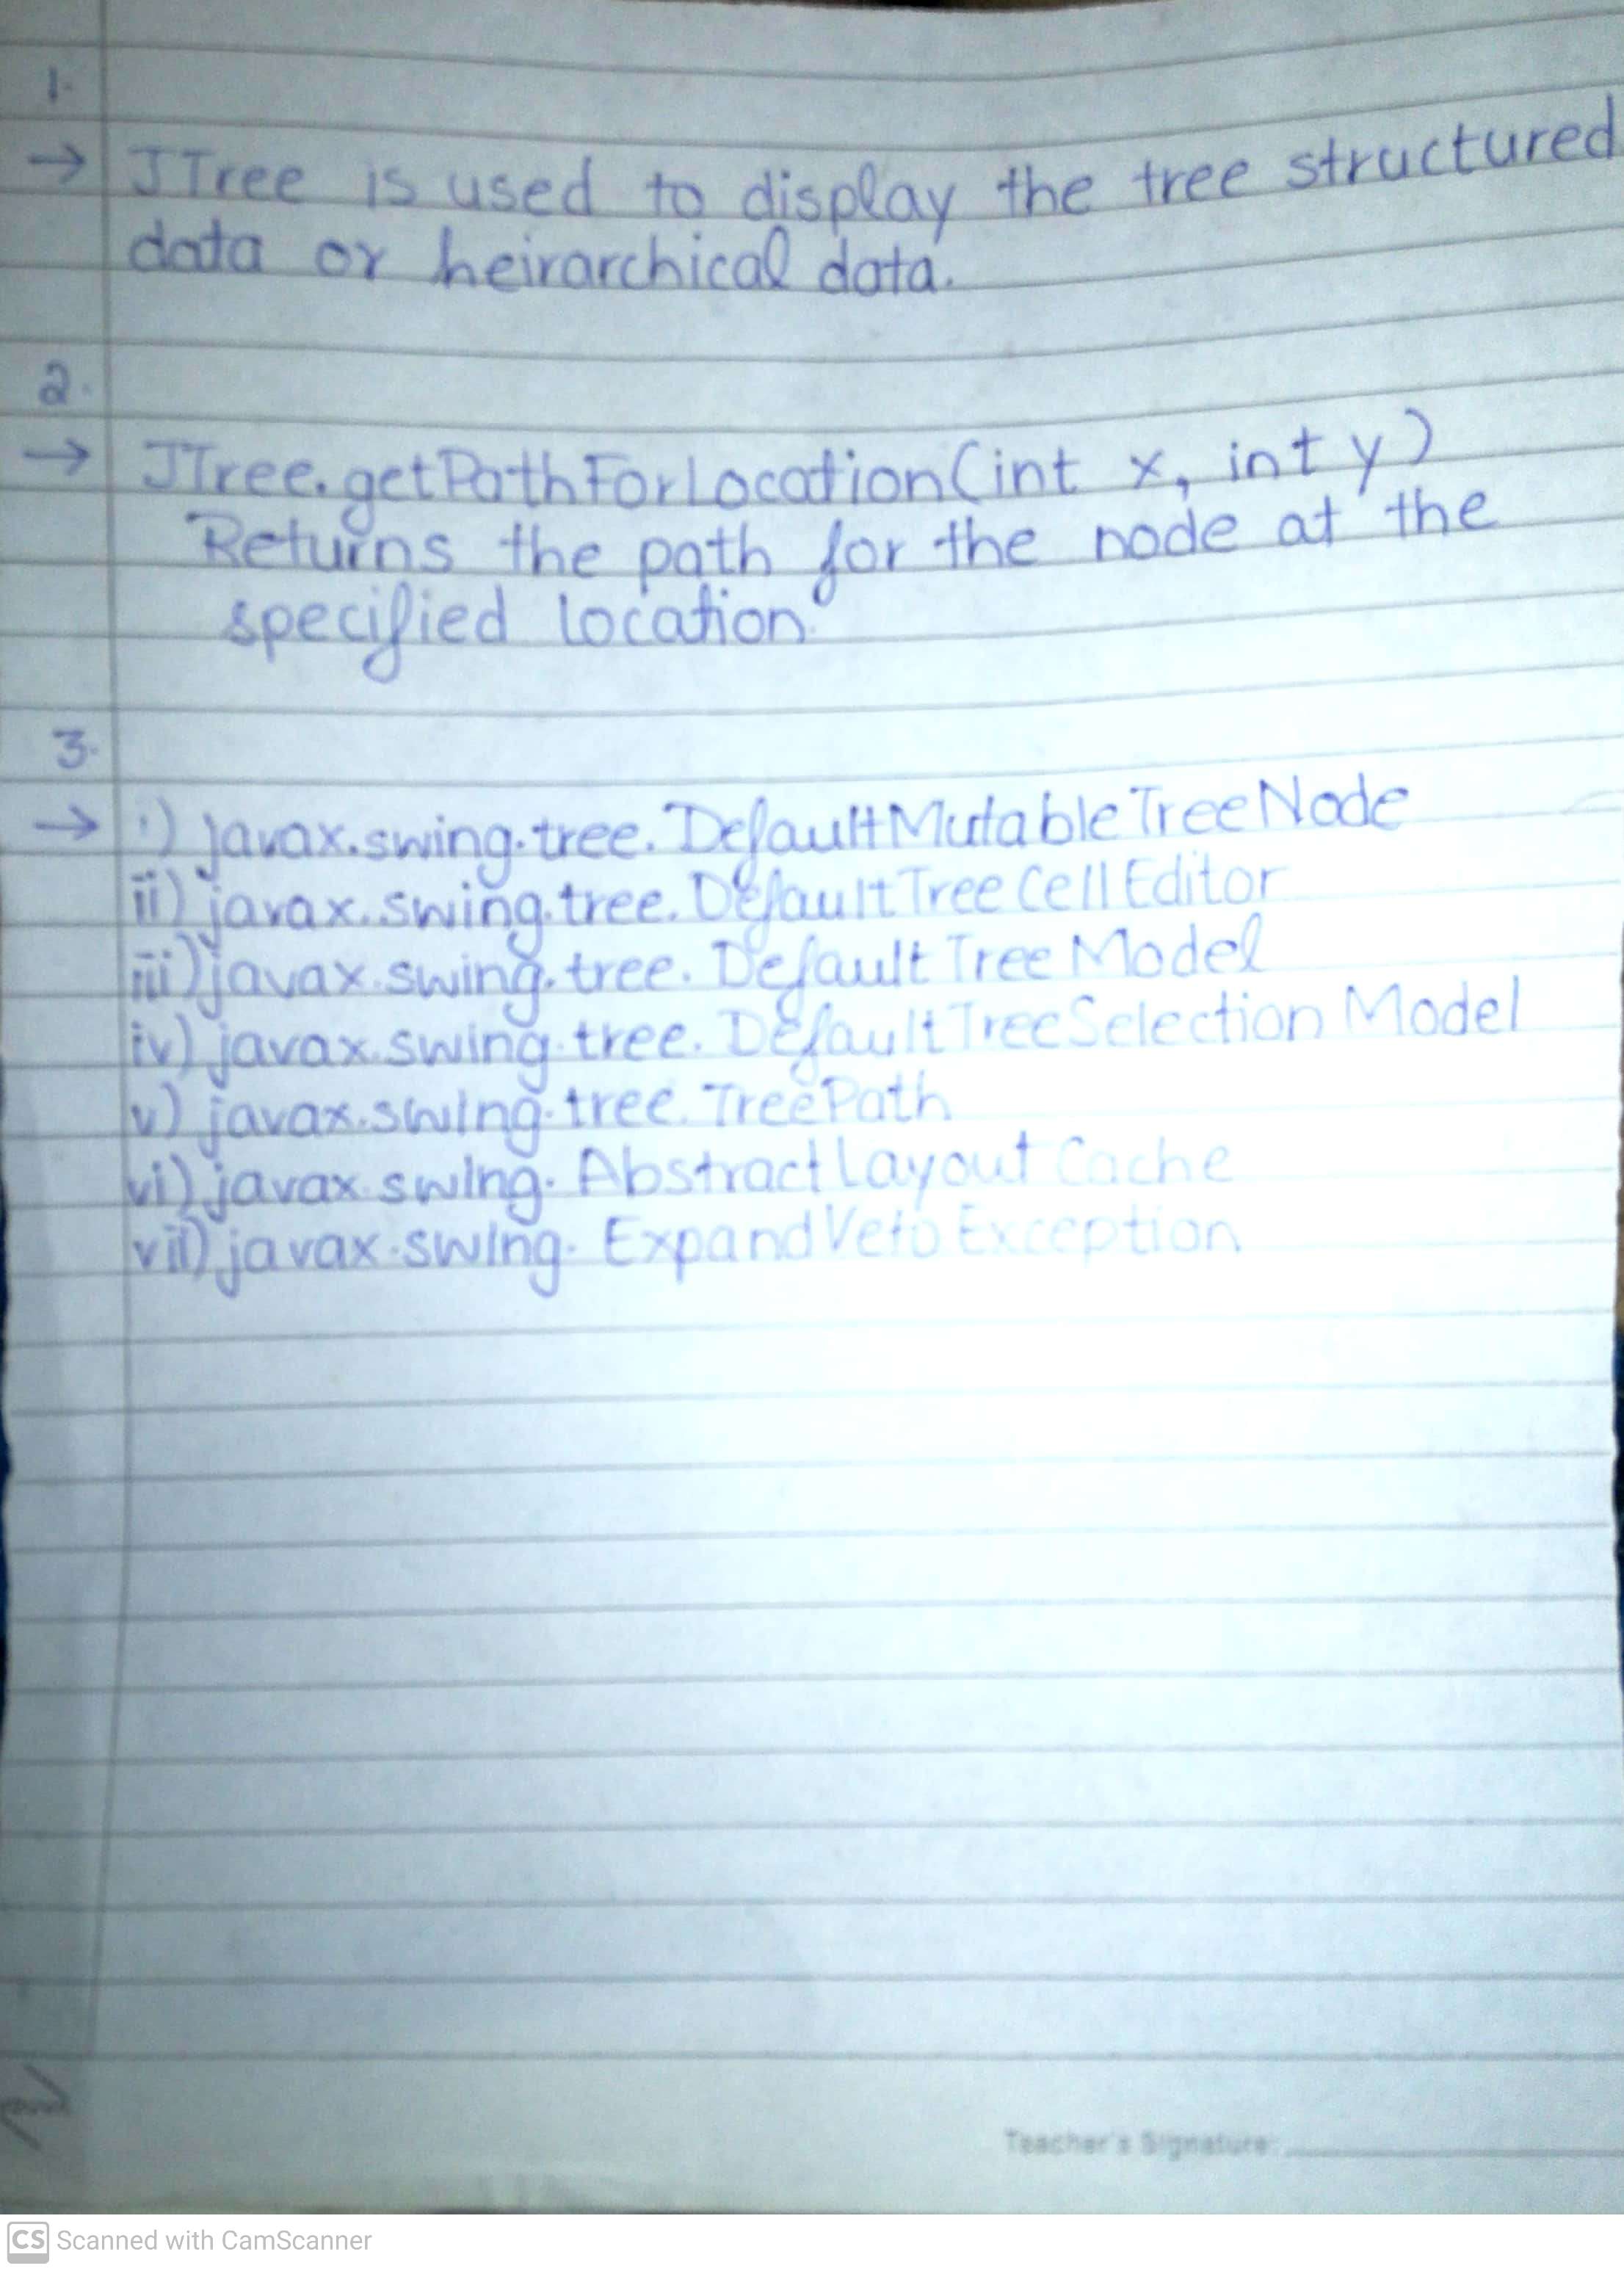 1.
→ JTree is used to display the tree structured
data or heirarchical data.
2.
→ JTree.getPathForLocation(int x, int y)
Returns the path for the node at the
specified location.
3.
→ i) javax.swing.tree.DefaultMutableTreeNode
ii) javax.swing.tree.DefaultTreeCellEditor
iii) javax.swing.tree.DefaultTreeModel
iv) javax.swing.tree.DefaultTreeSelectionModel
v) javax.swing.tree.TreePath
vi) javax.swing.AbstractLayoutCache
vii) javax.swing.ExpandVetoException
Teacher's Signature:
CS Scanned with CamScanner